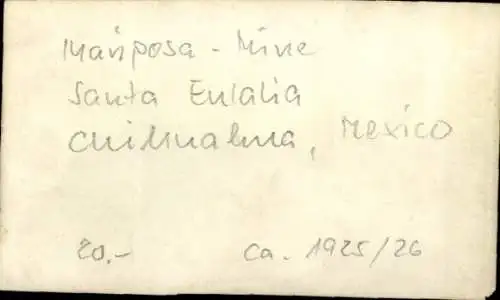 Mariposa - Mine
Santa Eulalia
Chihuahua, Mexico
20.- ca. 1925/26